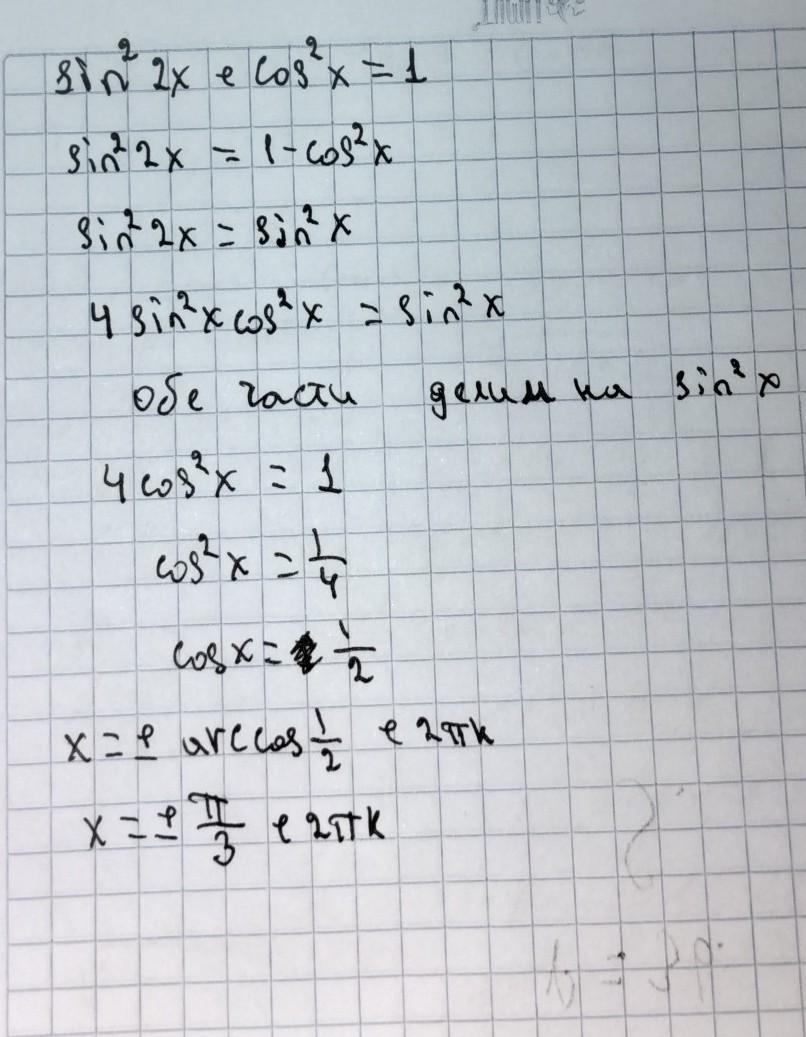 sin² 2x + cos² x = 1
sin² 2x = 1 - cos² x
sin² 2x = sin² x
4 sin² x cos² x = sin² x
обе части делим на sin² x
4 cos² x = 1
cos² x = 1/4
cos x = 1/2
x = ± arccos 1/2 + 2πk
x = ± π/3 + 2πk